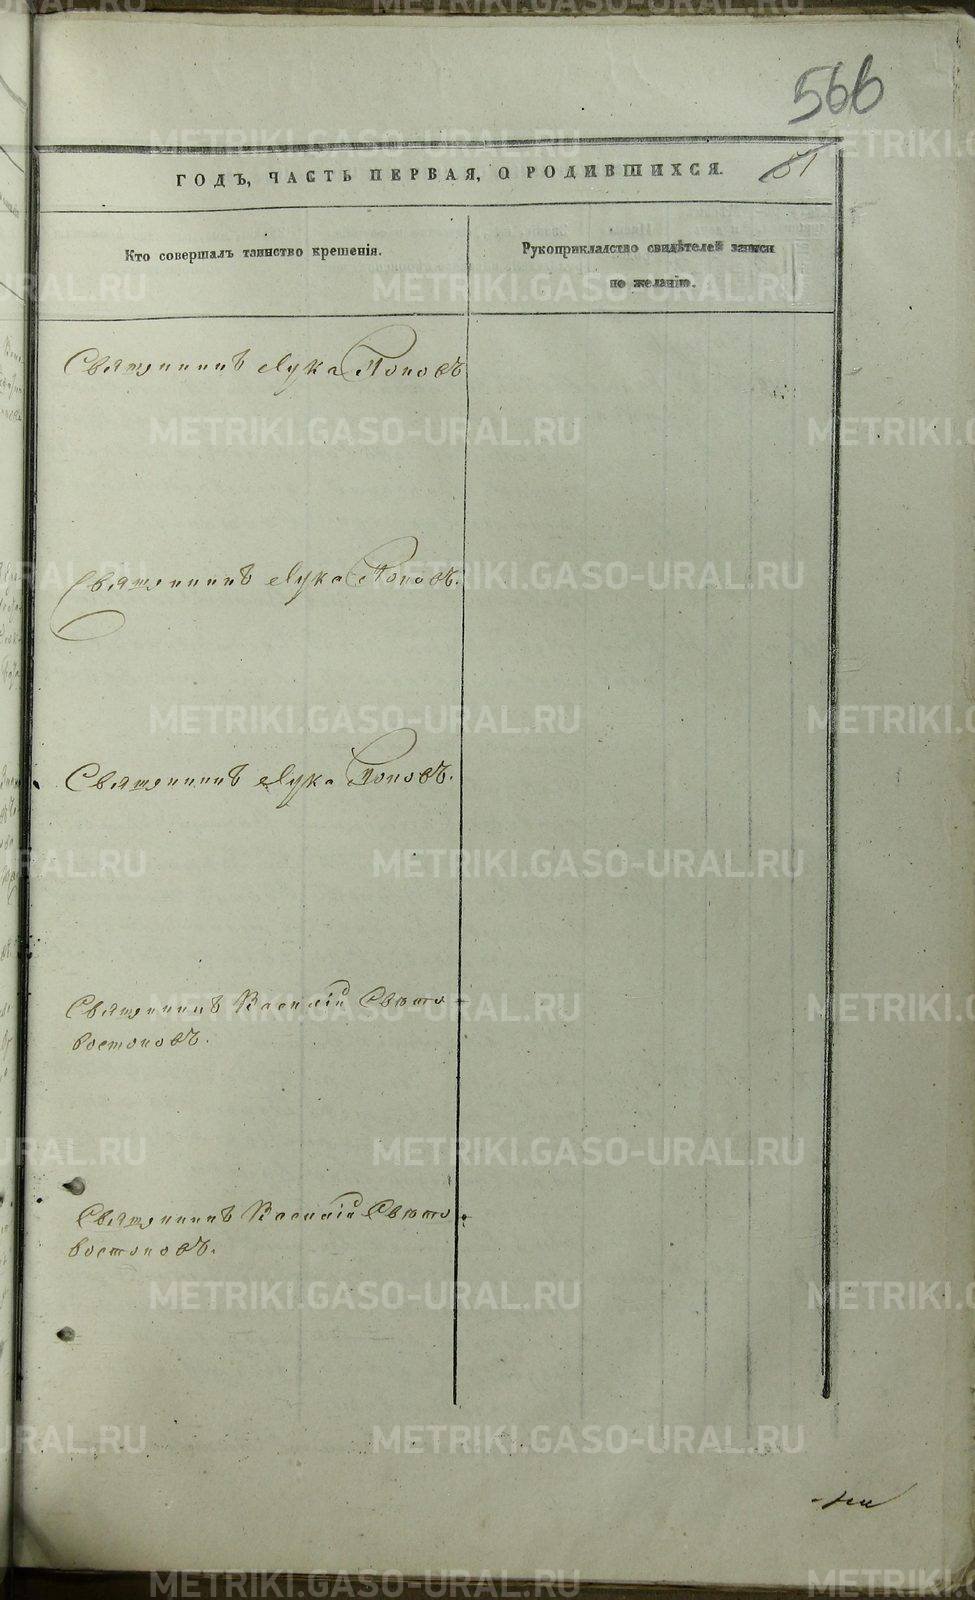 566
51
ГОДЪ, ЧАСТЬ ПЕРВАЯ, О РОДИВШИХСЯ.
Кто совершалъ таинство крещенія.
Рукоприкладство свидѣтелей записи
по желанію.
Священникъ Лука Поповъ
Священникъ Лука Поповъ.
Священникъ Лука Поповъ.
Священникъ Василій Свѣто-
востоковъ.
Священникъ Василій Свѣто-
востоковъ.
METRIKI.GASO-URAL.RU